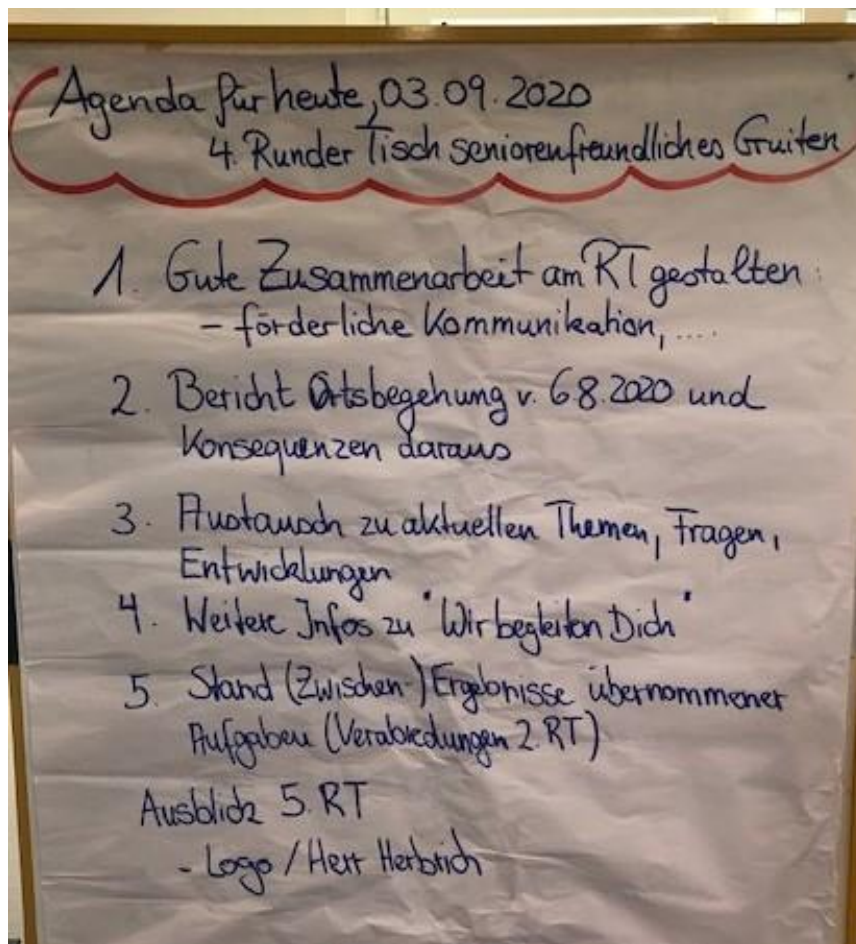 Agenda für heute, 03.09.2020
4. Runder Tisch seniorenfreundliches Gruiten
1. Gute Zusammenarbeit am RT gestalten:
- förderliche Kommunikation, ....
2. Bericht Ortsbegehung v. 6.8.2020 und
Konsequenzen daraus
3. Austausch zu aktuellen Themen, Fragen,
Entwicklungen
4. Weitere Infos zu "Wir begleiten Dich"
5. Stand (Zwischen-) Ergebnisse übernommener
Aufgaben (Verabredungen 2. RT)
Ausblick 5. RT
- Logo / Herr Herbrich